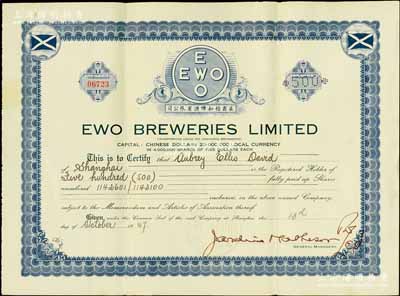 06723
500
EWO
EWO BREWERIES LIMITED
CAPITAL: CHINESE DOLLARS 20,000,000 LOCAL CURRENCY
IN 4,000,000 SHARES OF FIVE DOLLARS EACH
This is to Certify that Aubrey Ellis David
of Shanghai is the Registered Holder of
Five hundred (500) fully paid up Shares
numbered 1143601/1144100 inclusive, in the above named Company,
subject to the Memorandum and Articles of Association thereof.
Given under the Common Seal of the said Company at Shanghai the
day of October 19
Jardine Matheson
GENERAL MANAGERS